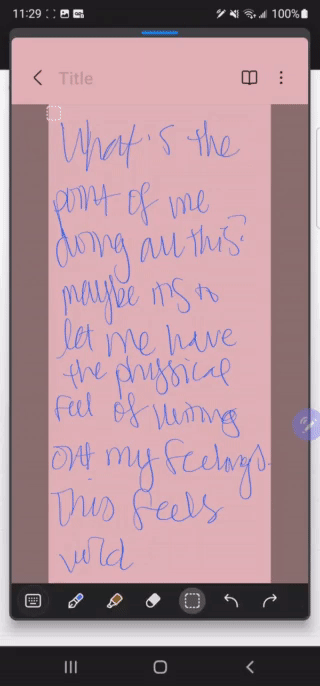 11:29
100%
Title
What's the
point of me
doing all this?
maybe it's to
let me have
the physical
feel of
out my feelings.
This feels